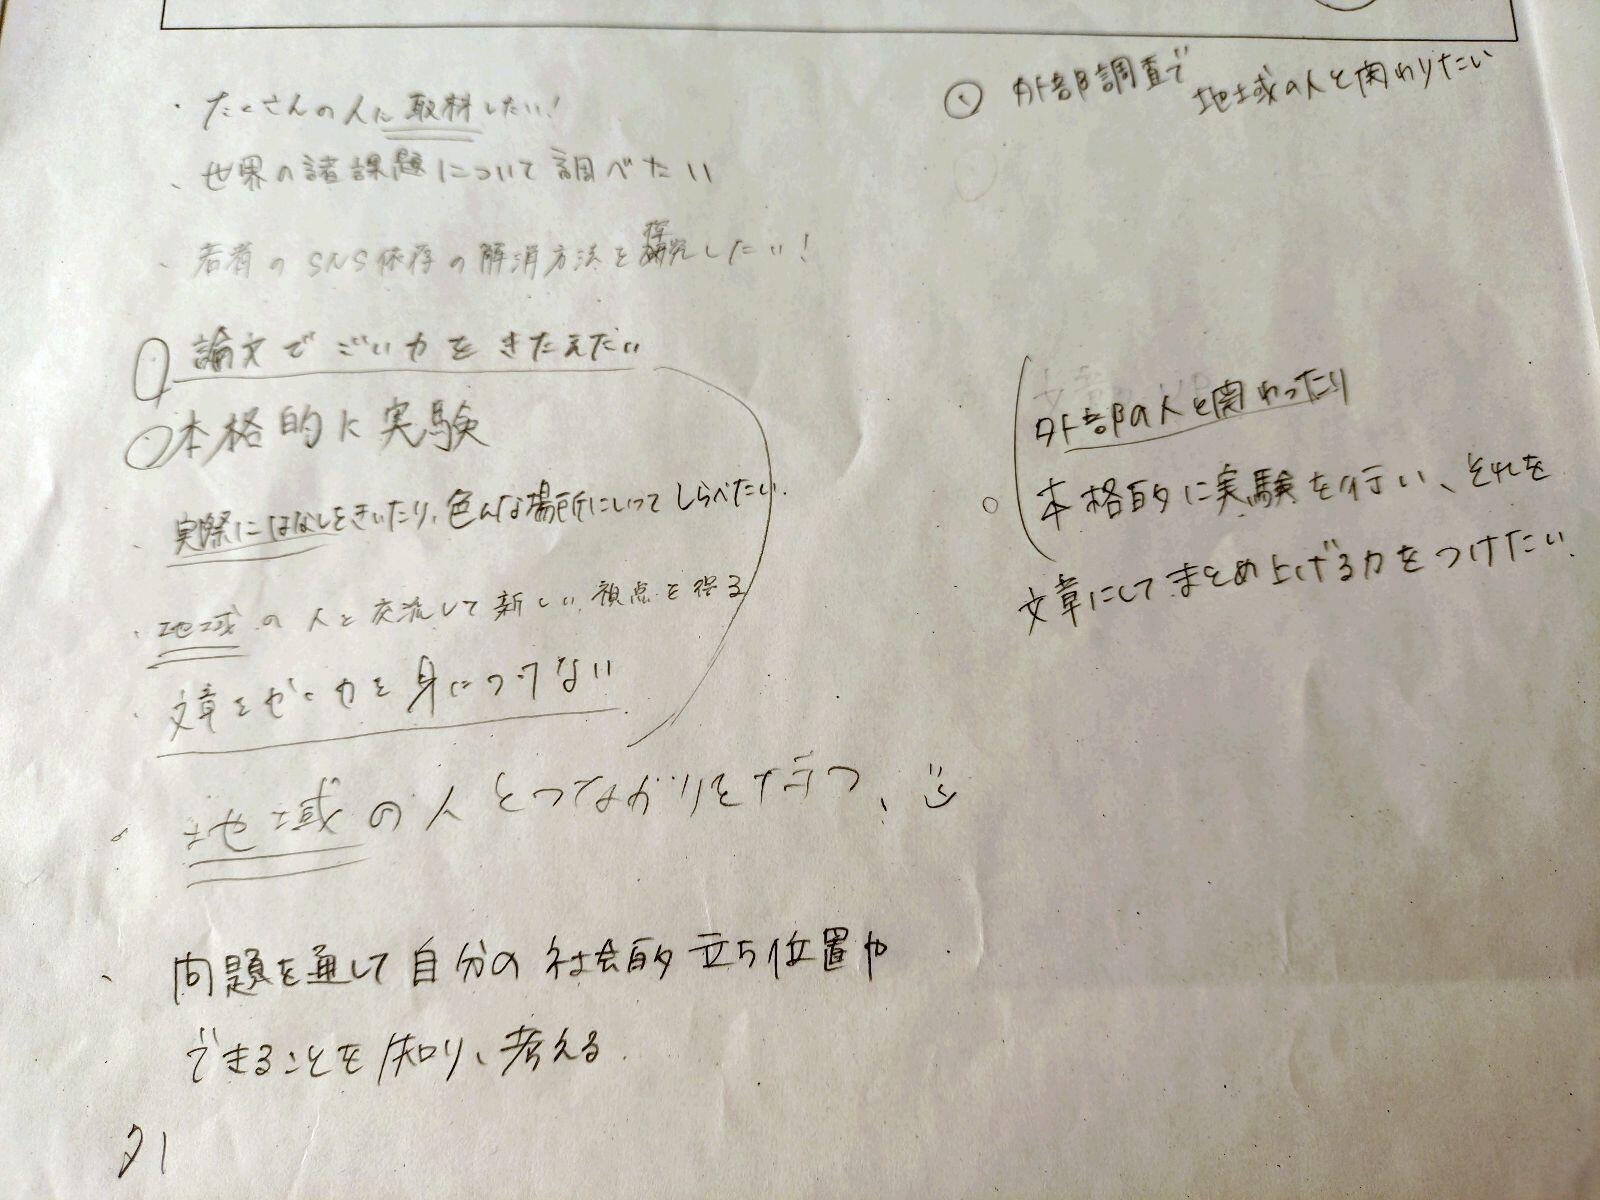 ・たくさんの人に取材したい！
・世界の諸課題について調べたい
・若者のSNS依存の解消方法を探究したい！
論文でごい力をきたえたい
・本格的に実験
・実際にはなしをきいたり、色んな場所にいってしらべたい.
・地域の人と交流して新しい視点を得る
・文章をかく力を身につけたい
・地域の人とつながりを持つ、
・問題を通して自分の社会的立ち位置や
できることを知り、考える.
外部調査で
地域の人と関わりたい
外部の人と関わったり
本格的に実験を行い、それを
文章にしてまとめ上げる力をつけたい.